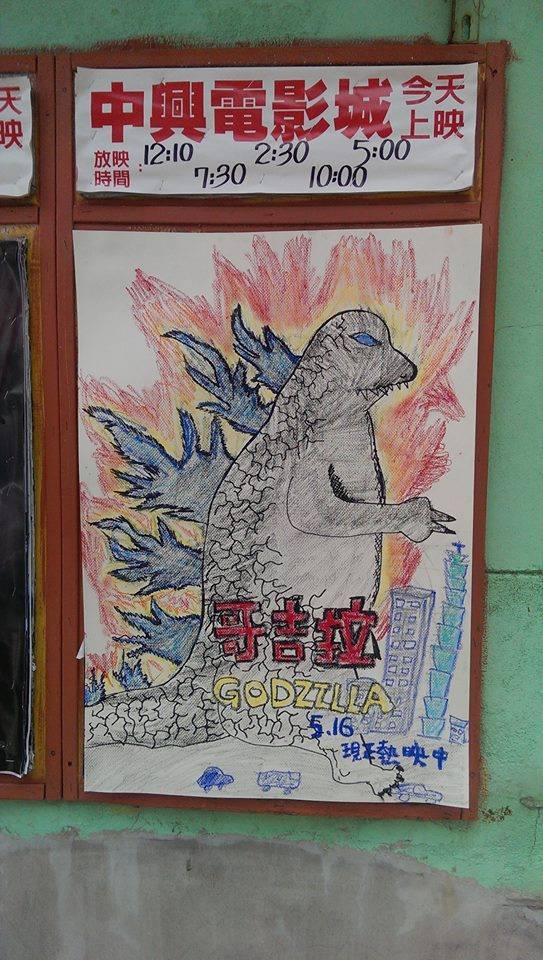 中興電影城 今天上映
放映時間: 12:10 2:30 5:00
7:30 10:00
天
映
哥吉拉
GODZZILLA
5.16
現正熱映中